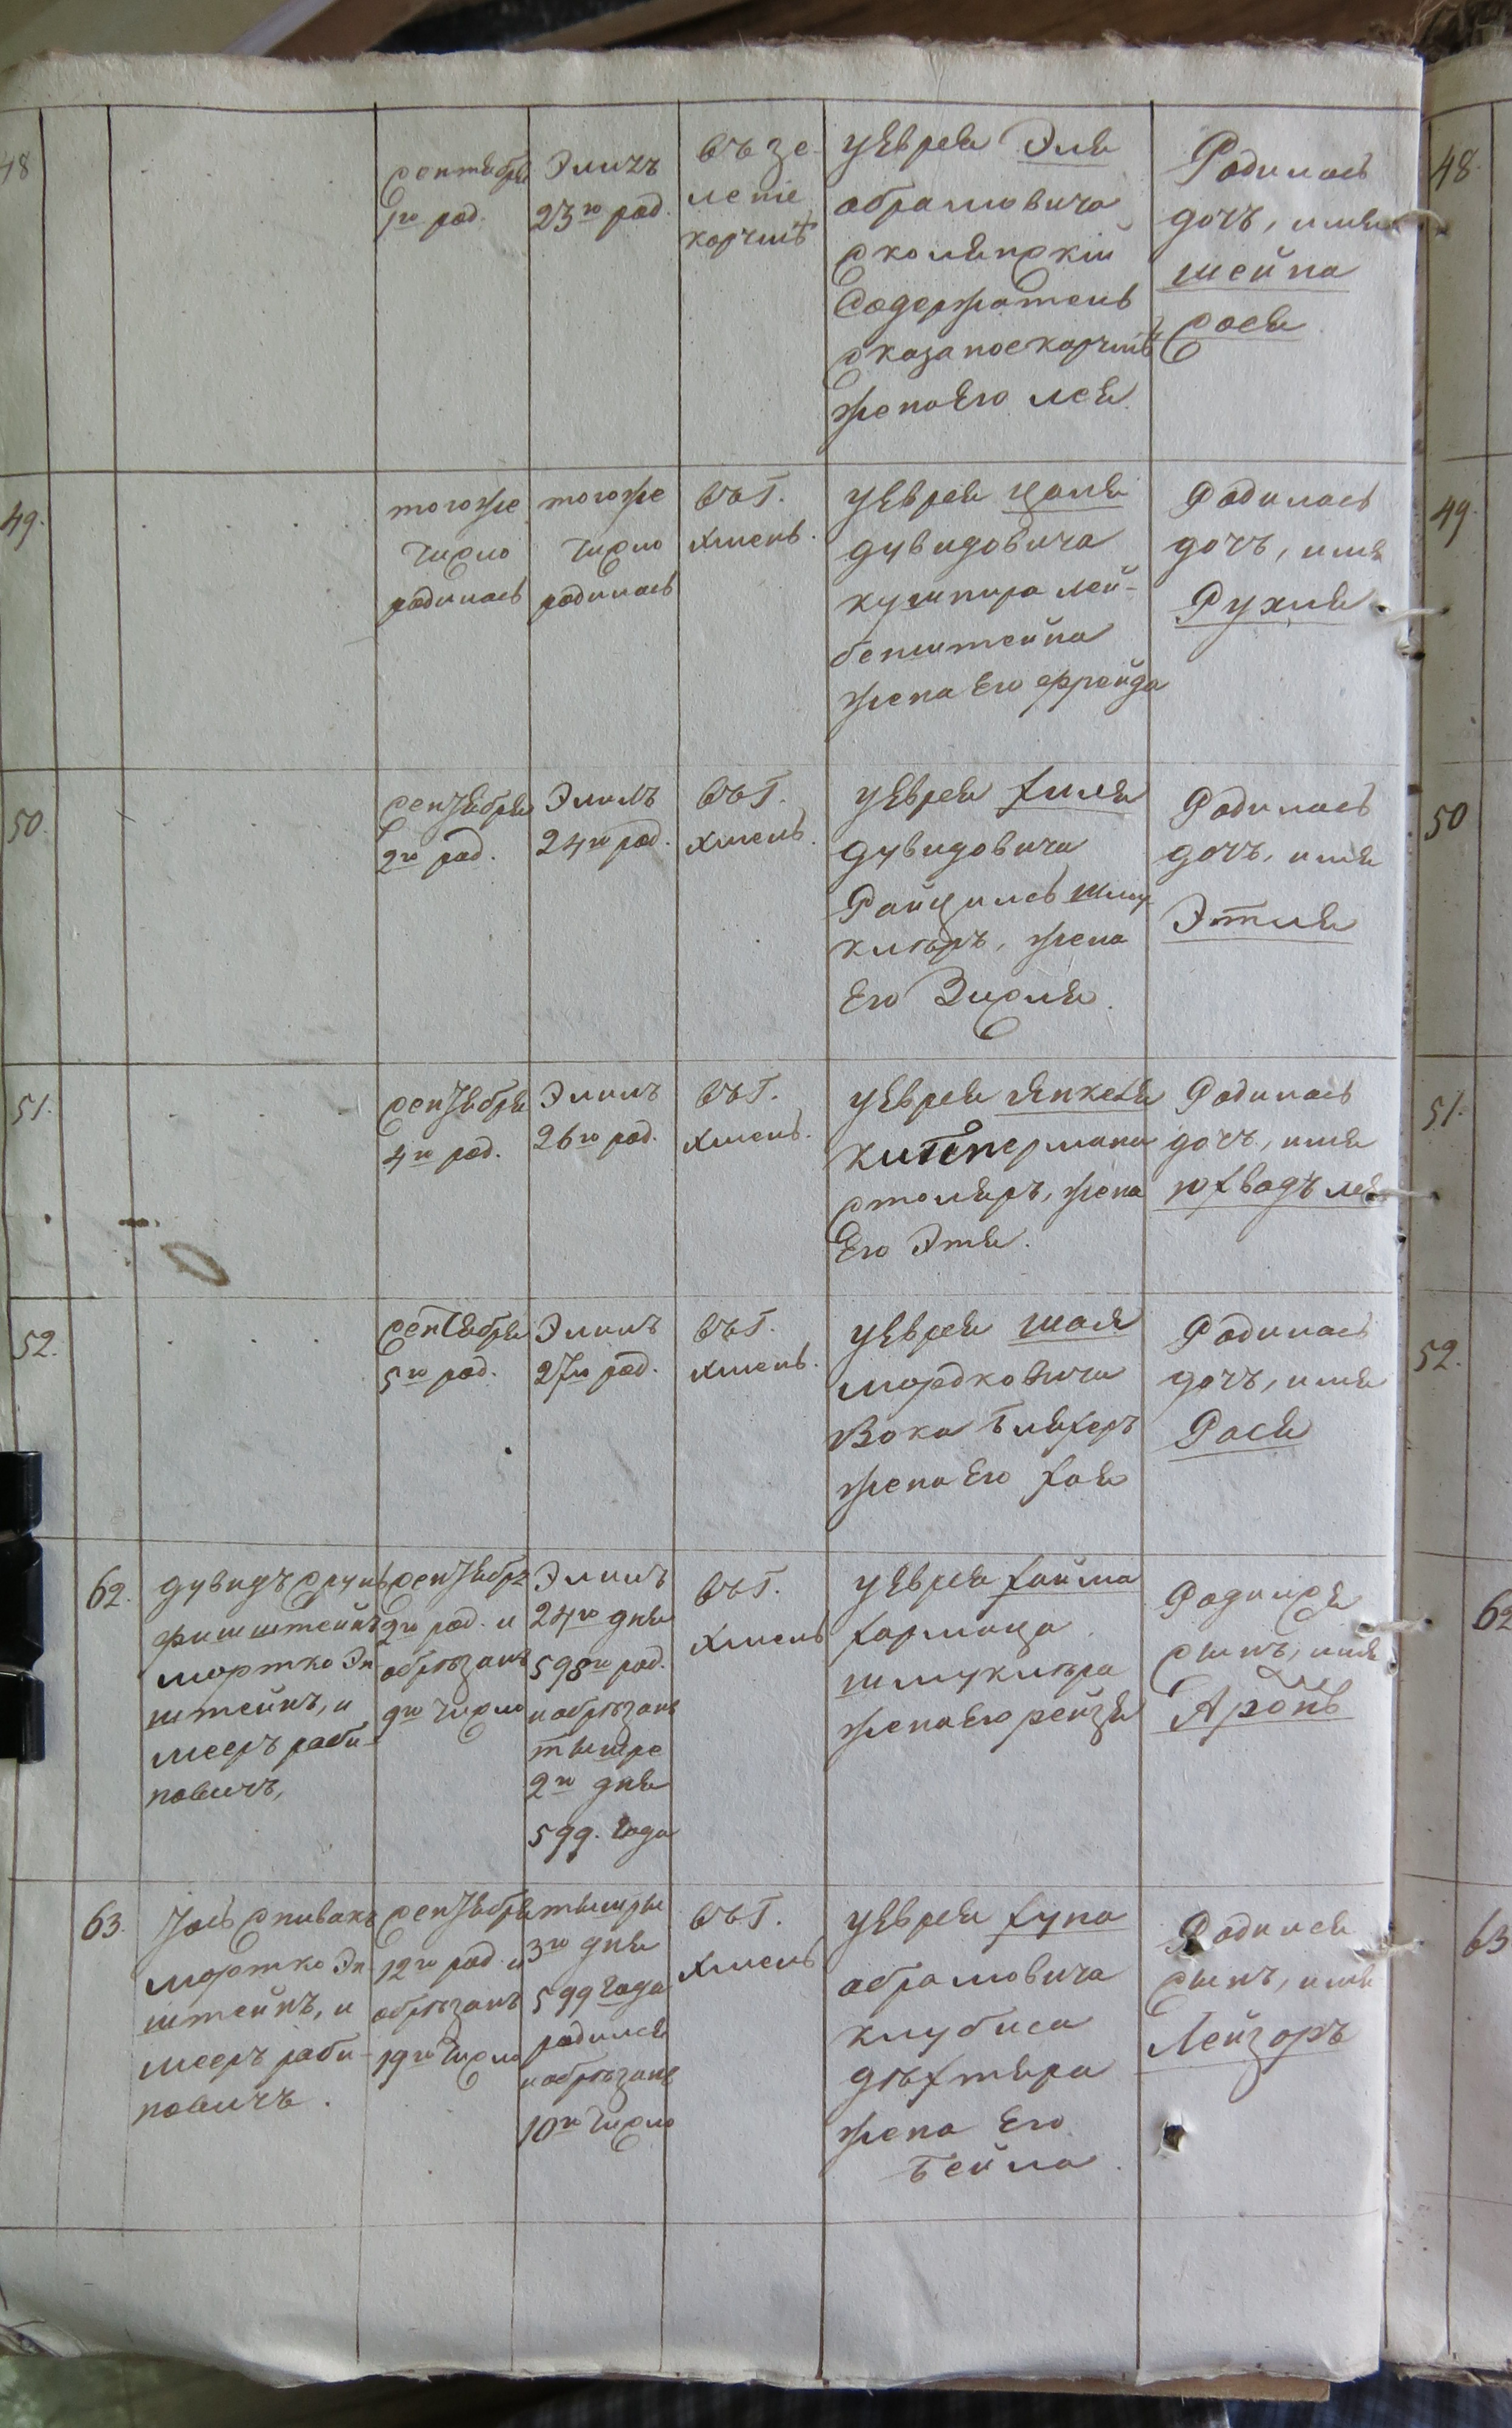 48
сентября
1го род.
Элюлъ
23го род.
въ зе-
леной
корчмѣ
у Еврея Эля
абрамовича
сколянскій
Содержатель
сказаное корчмѣ
жена Его лея
Родилась
дочь, имя
шейна
Сося
48.
49.
тогоже
число
родилась
тогоже
число
родилась
въ Г.
хмель.
у Еврея цаля
дувидовича
кушнира лей-
бенштейна
жена Его фрейда
Родилась
дочь, имя
Рухля
49
50.
сентября
2го род.
Элюлъ
24го род.
въ Г.
хмель.
у Еврея хиля
дувидовича
Райцись шму
клѣръ, жена
Его Зисля.
Родилась
дочь, имя
Этля
50
51.
сентября
4го род.
Элюлъ
26го род.
въ Г.
хмель.
у Еврея Янкеля
китпермана
столяръ, жена
Его Этя.
Родилась
дочь, имя
юхвадъ лея
51.
52.
сентября
5го род.
Элюлъ
27го род.
въ Г.
хмель.
у Еврея шая
мордковича
Вока Бляхеръ
жена Его хая
Родилась
дочь, имя
Рася
52.
62.
дувидъ сруль
фишштейнъ
мортко Эп
штейнъ, и
мееръ раби-
новичъ,
сентября
2го род. и
обрѣзанъ
9го число
Элюлъ
24го дня
598го род.
и обрѣзанъ
тишре
2го дня
599. года
въ Г.
хмель
у Еврея хайма
хармаца
шмуклѣра
жена Его рейзя
Родился
сынъ, имя
Аронъ
62
63.
Іось спивакъ
мортко Эп
штейнъ, и
мееръ раби-
новичъ.
сентября
12го род. и
обрѣзанъ
19го число
тишры
3го дня
599 года
родился
и обрѣзанъ
10го число
въ Г.
хмель
у Еврея хуна
абрамовича
клубиса
дѣхтяра
жена Его
Бейла.
Родился
сынъ, имя
Лейзоръ
63